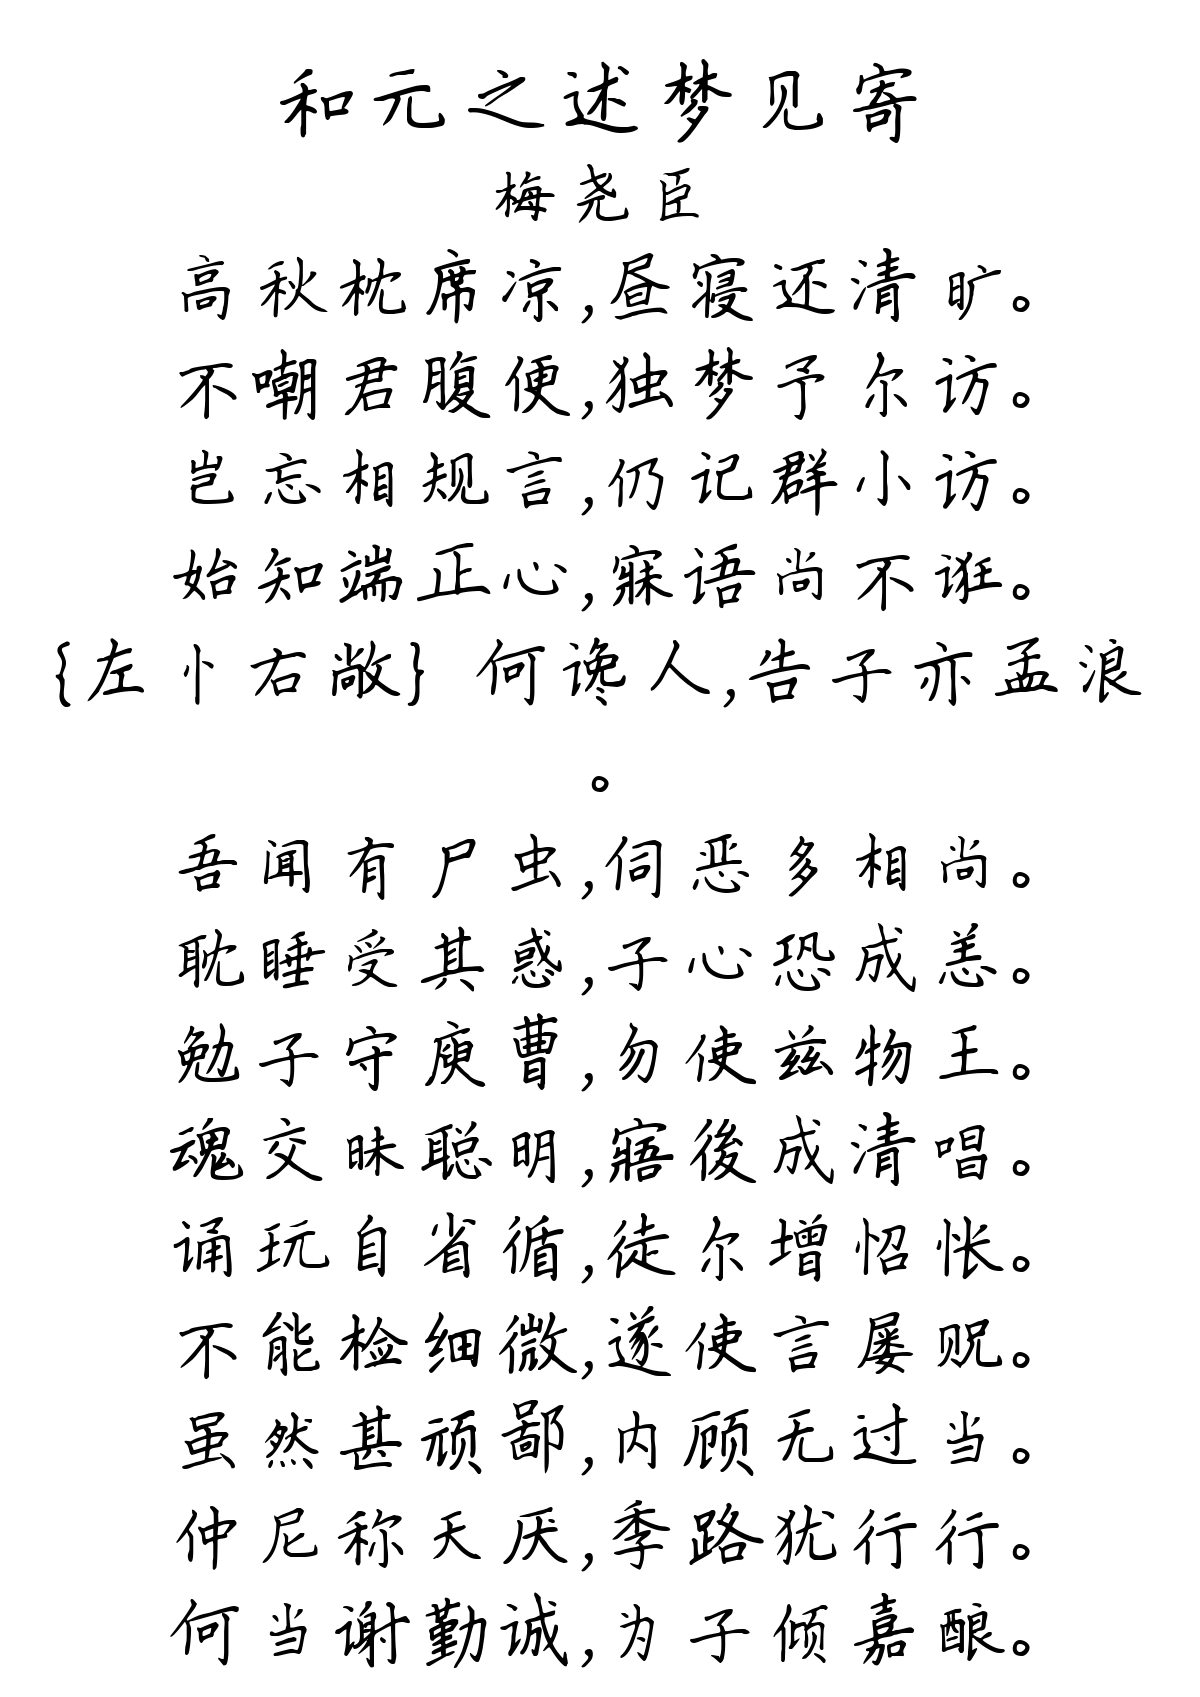 和元之述梦见寄
梅尧臣
高秋枕席凉,昼寝还清旷。
不嘲君腹便,独梦予尔访。
岂忘相规言,仍记群小访。
始知端正心,寐语尚不诳。
{左忄右敞} 何谗人,告子亦孟浪
。
吾闻有尸虫,伺恶多相尚。
耽睡受其惑,子心恐成恙。
勉子守庾曹,勿使兹物王。
魂交昧聪明,寤後成清唱。
诵玩自省循,徒尔增怊怅。
不能检细微,遂使言屡贶。
虽然甚顽鄙,内顾无过当。
仲尼称天厌,季路犹行行。
何当谢勤诚,为子倾嘉酿。